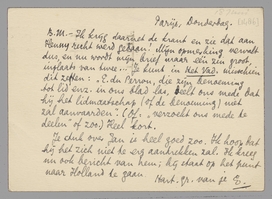 Parijs, Donderdag.
B.M. – Ik krijg daarnet de krant en zie dat aan
Henny recht werd gedaan! Mijn opmerking vervalt
dus, en nu wordt mijn brief maar één zin groot,
inplaats van twee. – Je kunt in Het Vad. misschien
dit zetten: „E. du Perron, die zijn benoeming
tot lid enz. in ons blad las, belt ons mede dat
hij het lidmaatschap (of de benoeming) niet
zal aanvaarden". (Of: „verzoekt ons mede te
deelen" of zoo.) Heel kort.
Je stuk over Jan is heel goed zoo. Ik hoop dat
hij het zich niet te erg aantrekken zal. Ik kreeg
nu ook bericht van hem; hij staat op het punt
naar Holland te gaan.
Hart. gr. van je E.